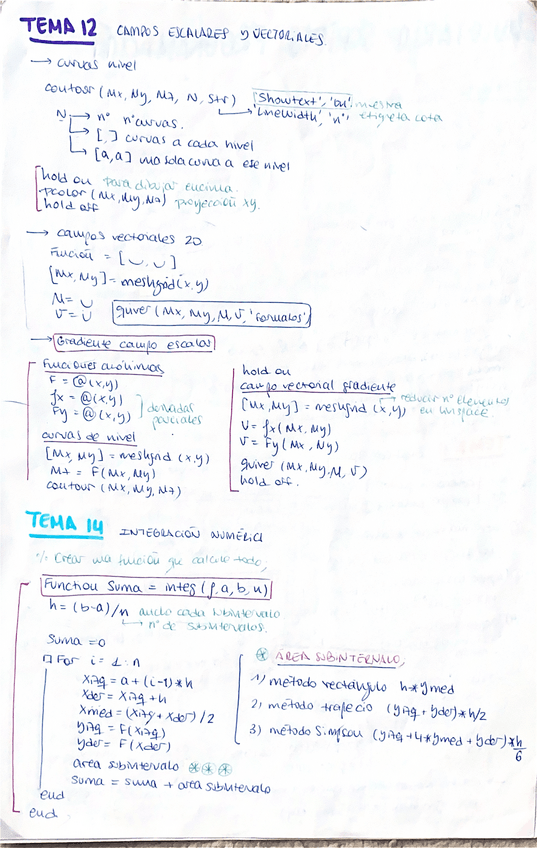 TEMA 12 CAMPOS ESCALARES y VECTORIALES
→ curvas nivel
contour (Mx, My, Mz, N, str) 'Showtext', 'on', muestra
'LineWidth', 'n', etiqueta cota
N → nº nºcurvas.
→ [,] curvas a cada nivel
→ [a,a] una sola curva a ese nivel
hold on para dibujar encima.
pcolor (Mx, My, Mz) proyección xy.
hold off
→ campos vectoriales 2D
Función = [ , ]
[Mx, My] = meshgrid(x,y)
U =
V =
quiver (Mx, My, U, V, 'formatos')
→ Gradiente campo escalar
Funciones anónimas
F = @(x,y)
fx = @(x,y)
Fy = @(x,y)
derivadas parciales
curvas de nivel
[Mx, My] = meshgrid (x,y)
Mz = F(Mx, My)
contour (Mx, My, Mz)
hold on
campo vectorial gradiente
→ reducir nº elementos en linspace
[Mx, My] = meshgrid (x,y)
U = fx(Mx, My)
V = Fy(Mx, My)
quiver (Mx, My, U, V)
hold off.
TEMA 14 INTEGRACIÓN NUMÉRICA
% Crear una función que calcule todo,
Function Suma = integ (f, a, b, n)
h = (b-a)/n ancho cada subintervalo
→ nº de subintervalos.
Suma = 0
For i = 1:n
xizq = a + (i-1)*h
xder = xizq + h
xmed = (xizq + xder)/2
yizq = F(xizq)
yder = F(xder)
area subintervalo ***
suma = suma + area subintervalo
end
end
* ÁREA SUBINTERVALO,
1) método rectángulo h*ymed
2) método trapecio (yizq + yder)*h/2
3) método Simpson (yizq + 4*ymed + yder)*h/6